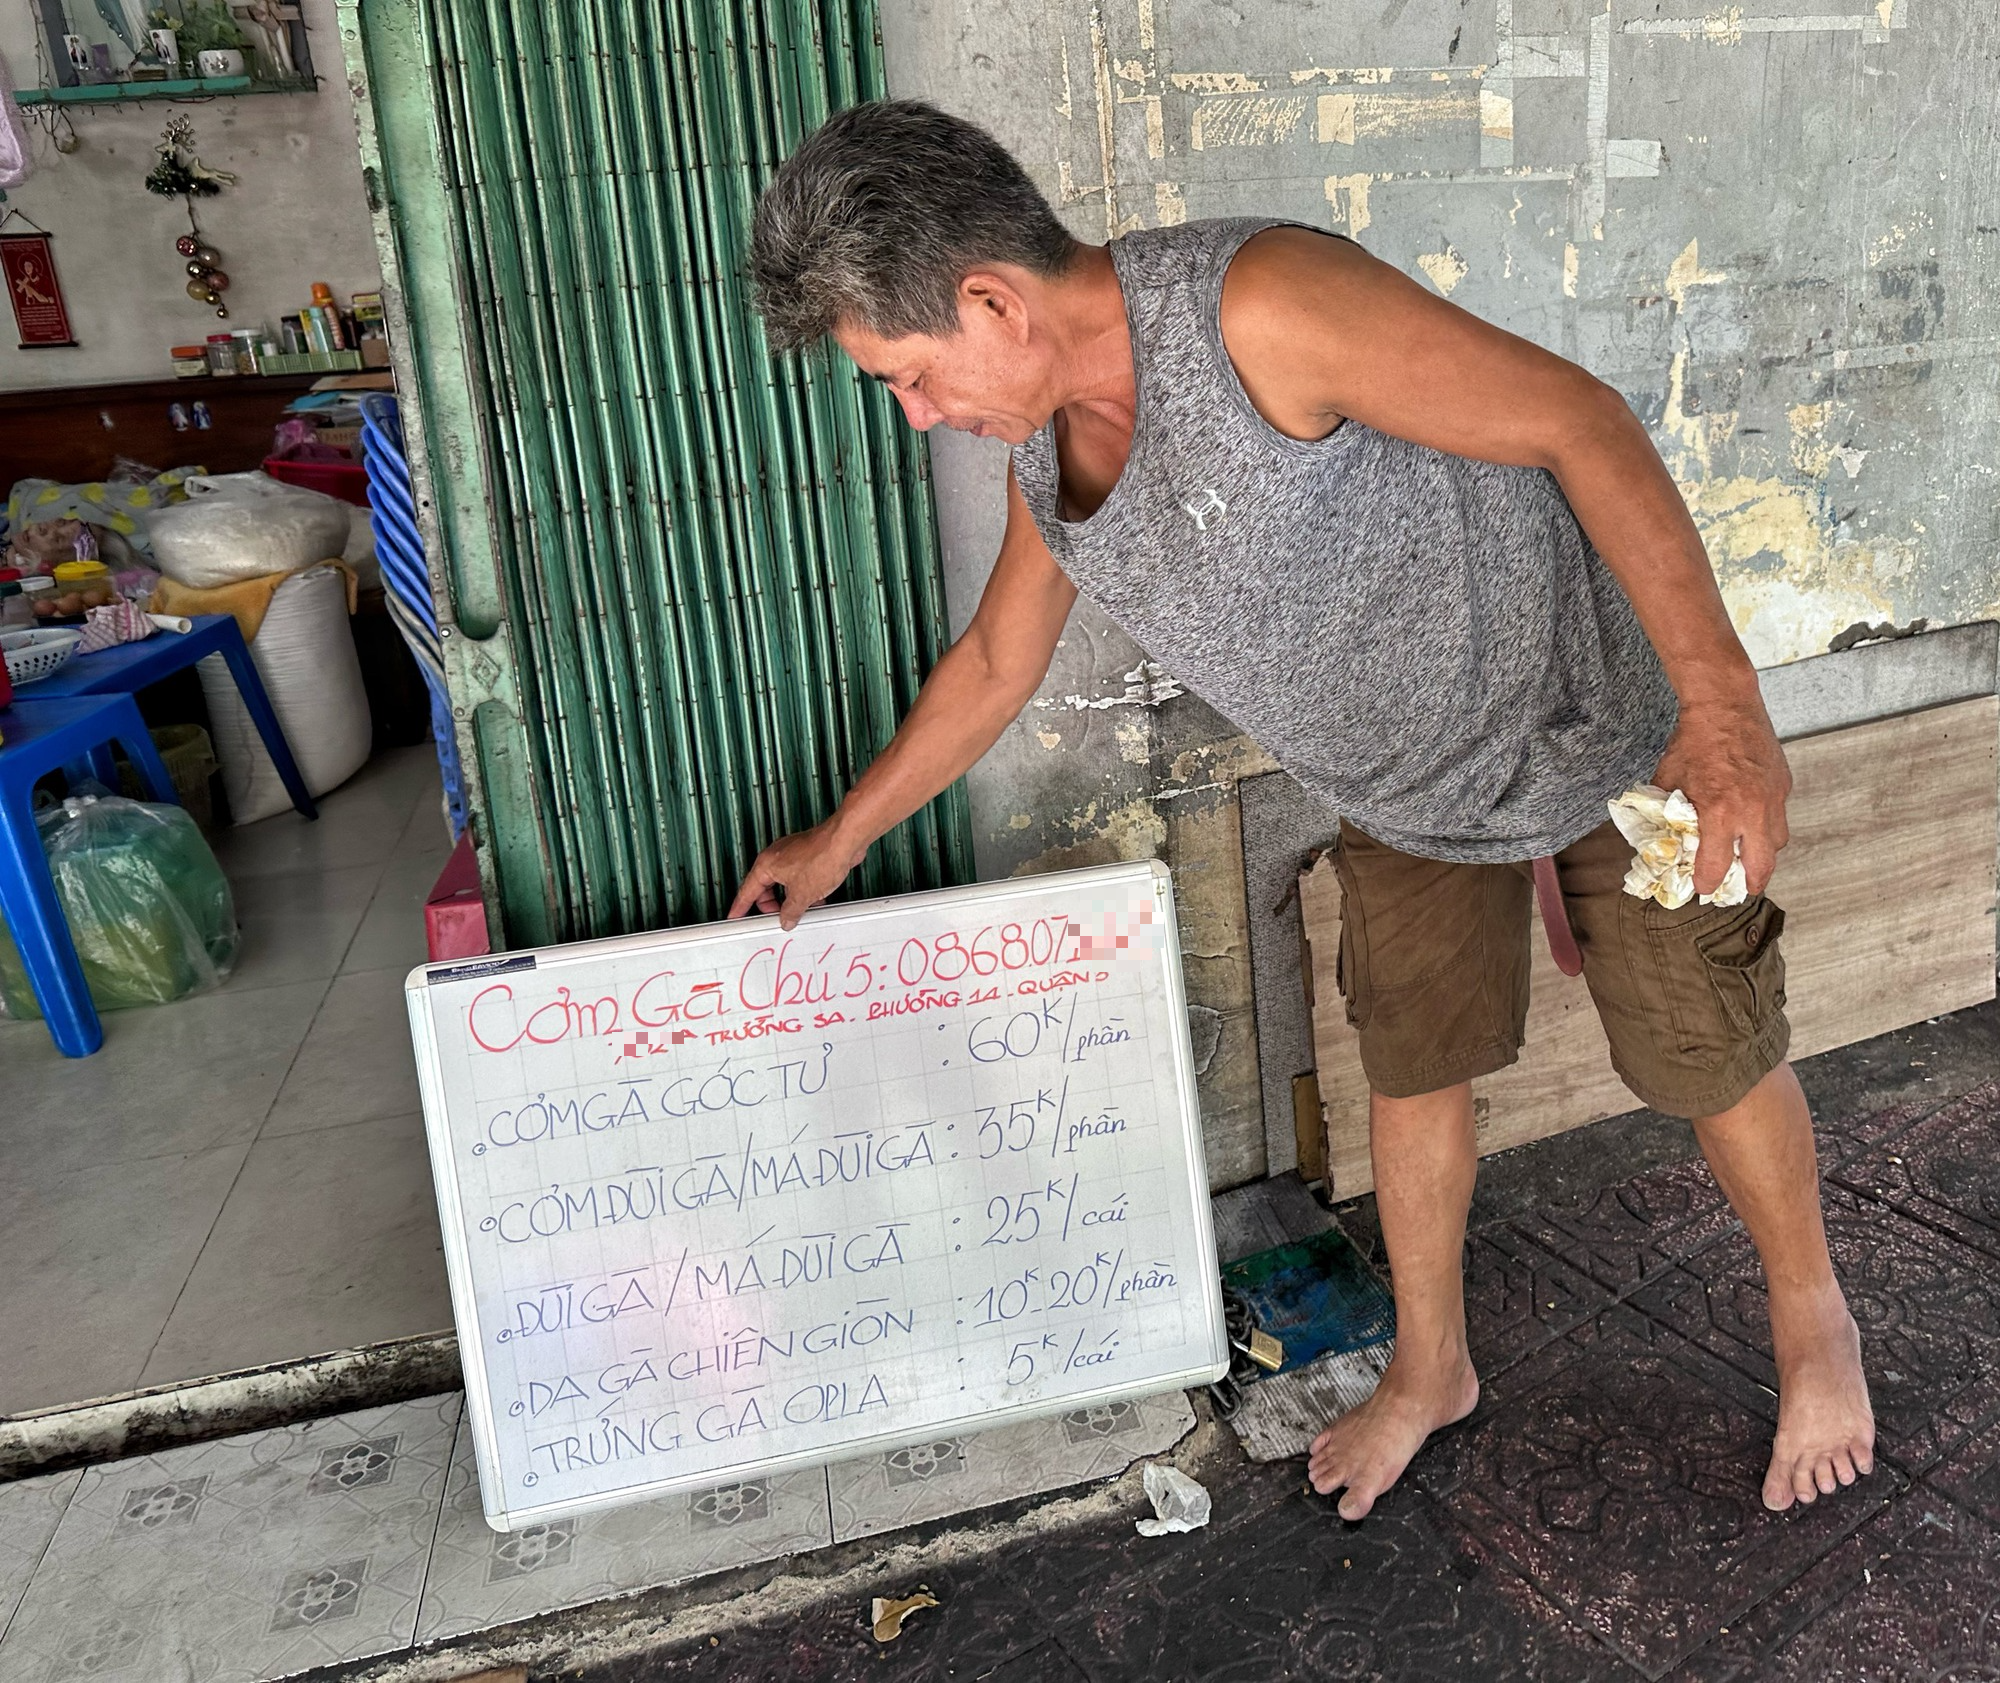 Cơm Gà Chú 5: 086807
TRƯỜNG SA. PHƯỜNG 14 - QUẬN 3
CƠM GÀ GÓC TƯ : 60K/phần
CƠM ĐÙI GÀ/MÁ ĐÙI GÀ : 35K/phần
ĐÙI GÀ / MÁ ĐÙI GÀ : 25K/cái
DA GÀ CHIÊN GIÒN : 10K-20K/phần
TRỨNG GÀ OPLA : 5K/cái